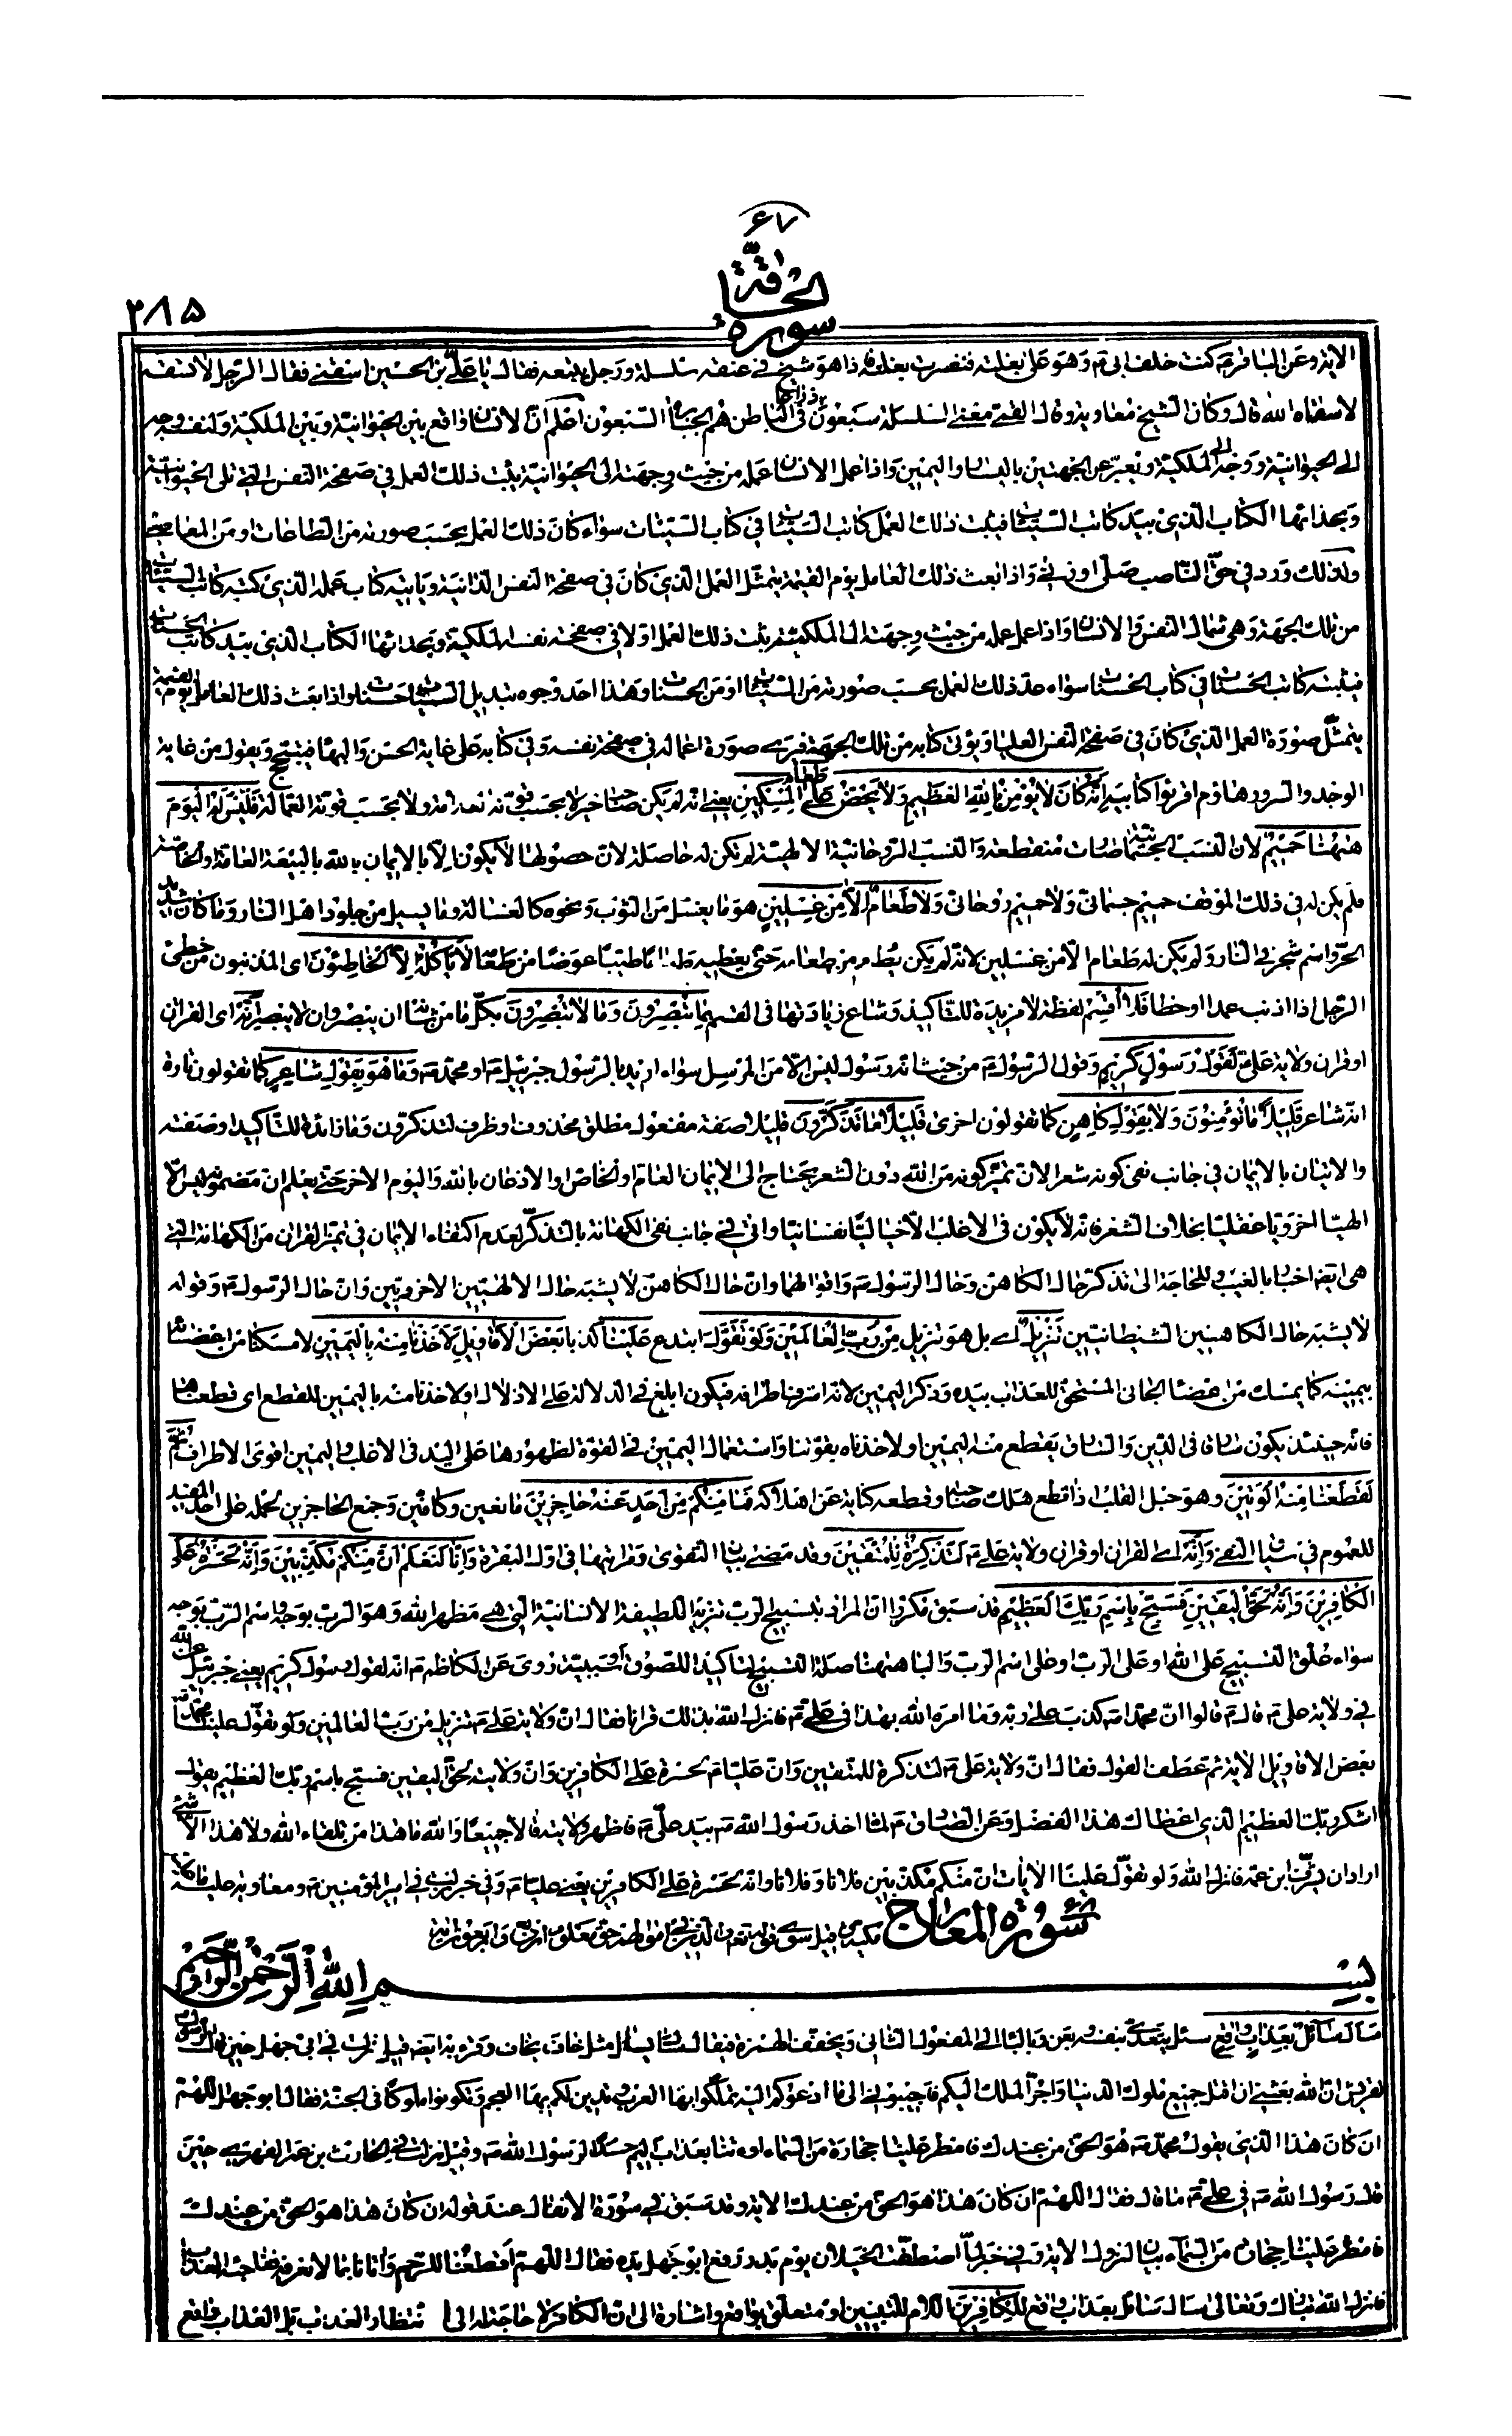 ۶۷
سورة الحاقّة
۲۸۵
الاية وعن الباقر ع كنت خلف ابى ع وهو على بغلته فنفرت بغلته فاذا هو شيخ فى عنقه سلسلة ورجل يتبعه فقال يا علىّ بن الحسين اسقنى فقال الرجل لا تسقه
لا سقاه الله قال وكان الشيخ معاوية وقال القمّى معنى السلسلة سبعون ذراعا فى الباطن هم الجبابرة السبعون اعلم انّ الانسان واقع بين الحيوانية وبين الملكية ولنفسه وجه
الى الحيوانية ووجه الى الملكية ويعبّر عن الجهتين باليسار واليمين واذا عمل الانسان عمله من حيث وجهته الى الحيوانية يثبت ذلك العمل فى صفحة النفس التى تلى الحيوانية
وبحذائها الكتاب الذى بيد كاتب السيئات فيثبت ذلك العمل كاتب السيئات فى كتاب السيئات سواء كان ذلك العمل بحسب صورته من الطاعات او من المعاصى
ولذلك ورد فى حقّ الناصب صلّى او زنى واذا بعث ذلك العامل يوم القيمة يتمثّل العمل الذى كان فى صفحة النفس الدانية ويأتيه كتاب عمله الذى كتبه كاتب السيئات
من تلك الجهة وهى شمال النفس والانسان واذا عمل عمله من حيث وجهته الى الملكية يثبت ذلك العمل اولا فى صفحة نفسه الملكية وبحذائها الكتاب الذى بيد كاتب الحسنات
فيثبته كاتب الحسنات فى كتاب الحسنات سواء عدّ ذلك العمل بحسب صورته من السيئات او من الحسنات وهذا احد وجوه تبديل السيئات حسنات واذا بعث ذلك العامل يوم القيمة
يتمثّل صورة العمل الذى كان فى صفحة النفس العليا ويؤتى كتابه من تلك الجهة فيرى صورة اعماله فى صفحة نفسه وفى كتابه على غاية الحسن والبهاء فيبتهج ويقول من غاية
الوجد والسرور هاؤم اقرؤا كتابيه انّه كان لا يؤمن بالله العظيم ولا يحضّ على طعام المسكين يعنى انه لم يكن صاحب خير لا بحسب قوّته ولا بحسب قوّته العمّالة فليس له اليوم
ههنا حميم لانّ النسب الجسمانيّة صارت منقطعة والنسب الروحانية الالهية لم تكن له حاصلة لانّ حصولها لا يكون الّا بالايمان بالله بالبيعة العامّة او الخاصّة
فلم يكن له فى ذلك الموقف حميم جسمانى ولا حميم روحانى ولا طعام الّا من غسلين هو ما يغسل من الثوب ونحوه كالغسالة وما يسيل من جلود اهل النار وما كان شديد
الحرّ واسم شجر فى النار ولم يكن له طعام الّا من غسلين لانه لم يكن يطعم من طعامه حتى يعطيه طعاما طيّبا عوضا من طعامه لا يأكله الّا الخاطئون اى المذنبون من خطئ
الرجل اذا اذنب عمدا او خطأ فلا اقسم لفظة لا مزيدة للتأكيد وشاع زيادتها فى القسم بما تبصرون وما لا تبصرون بكلّ ما من شأنه ان يبصر وان لا يبصر انّه اى القران
او قران ولاية علىّ ع لقول رسول كريم وقول الرسول ع من حيث انه رسول ليس الّا من المرسل سواء اريد بالرسول جبرئيل ع او محمّد ص وما هو بقول شاعر كما تقولون تارة
انّه شاعر قليلا ما تؤمنون ولا بقول كاهن كما تقولون اخرى قليلا ما تذكّرون قليلا صفة مفعول مطلق محذوف او ظرف لتذكّرون وما زائدة للتأكيد او صفته
والاتيان بالايمان فى جانب نفى كونه شعرا لانّ تميّز كونه من الله دون الشعر يحتاج الى الايمان العام او الخاص او الاذعان بالله واليوم الاخر حتى يعلم ان مضمونه ليس الّا
الهيّا اخرويّا عقليّا بخلاف الشعر فانه لا يكون فى الاغلب الّا خياليّا نفسانيّا واتى فى جانب نفى الكهانة بالتذكّر لعدم اكتفاء الايمان فى تميّز القران من الكهانة التى
هى ايضا اخبار بالغيب وللحاجة الى تذكّر حال الكاهن وحال الرسول ص واقوالهما وانّ حال الكاهن لا يشبه حال الالهيين الاخرويين وانّ حال الرسول ص وقوله
لا يشبه حال الكاهنين الشيطانيين تنزيل اى بل هو تنزيل من ربّ العالمين ولو تقوّل ابتدع علينا كذبا بعض الاقاويل لاخذنا منه باليمين لامسكنا من اعضائه
بيمينه كما يمسك من اعضاء الجانى المستحق للعذاب بيده وذكر اليمين لانه اشرف اطرافه فيكون ابلغ فى الدلالة على الاذلال او لاخذنا منه باليمين للقطع اى قطعناها
فانه حينئذ يكون كالسارق فى الدين والسارق يقطع منه اليمين او لاخذناه بقوّتنا واستعمال اليمين فى القوّة لظهورها على اليد فى الاغلب واليمين اقوى الاطراف ثمّ
لقطعنا منه الوتين وهو حبل القلب اذا قطع هلك صاحبه وقطعه كناية عن اهلاكه فما منكم من احد عنه حاجزين مانعين وكافّين وجمع الحاجزين لحمله على احد المفيد
للعموم فى سياق النفى وانّه اى القران او قران ولاية علىّ ع لتذكرة للمتّقين وقد مضى بيان التقوى ومراتبها فى اول البقرة وانّا لنعلم انّ منكم مكذّبين وانّه لحسرة على
الكافرين وانّه لحقّ اليقين فسبّح باسم ربّك العظيم قد سبق مكرّرا انّ المراد بتسبيح الربّ تنزيه اللطيفة الانسانية التى هى مظهر الله وهو الربّ بوجه واسم الربّ بوجه
سواء علّق التسبيح على الله او على الربّ او على اسم الربّ والباء ههنا صلة التسبيح لتأكيد اللصوق او سببية روى عن الكاظم ع انه لقول رسول كريم يعنى جبرئيل عن الله
فى ولاية علىّ ع قال ع قالوا انّ محمّدا ص كذب على ربّه وما امره الله بهذا فى علىّ ع فانزل الله بذلك قرانا فقال انّ ولاية علىّ ع تنزيل من ربّ العالمين ولو تقوّل علينا محمّد ص
بعض الاقاويل الاية ثم عطف القول فقال انّ ولاية علىّ ع لتذكرة للمتّقين وانّ عليّا ع لحسرة على الكافرين وانّ ولايته لحقّ اليقين فسبّح باسم ربّك العظيم يقول
اشكر ربّك العظيم الذى اعطاك هذا الفضل وعن الصادق ع لمّا اخذ رسول الله ص بيد علىّ ع فاظهر ولايته قالا جميعا والله ما هذا من تلقاء الله ولا هذا الّا شىء
اراد ان يشرّف ابن عمّه فانزل الله ولو تقوّل علينا الايات انّ منكم مكذّبين فلانا وفلانا وانه لحسرة على الكافرين يعنى عليّا ع وفى خبر نزلت فى امير المؤمنين ع ومعاوية عليه
سورة المعارج مكيّة وقيل سوى قوله تعالى والذين فى اموالهم حقّ معلوم اربع واربعون اية
بسم الله الرحمن الرحيم
سأل سائل بعذاب واقع سئل يتعدّى بنفسه وبعن وبالباء الى المفعول الثانى ويخفّف الهمزة فيقال سال يسال مثل خاف يخاف وقرء به ايضا قيل نزلت فى ابى جهل حين قال رسول الله
لقريش انّ الله بعثنى ان اقتل جميع ملوك الدنيا واجرّ الملك اليكم فاجيبونى الى ما ادعوكم اليه تملكوا بها العرب وتدين لكم بها العجم وتكونوا ملوكا فى الجنّة فقال ابو جهل اللهمّ
ان كان هذا الذى يقول محمّد ص هو الحقّ من عندك فامطر علينا حجارة من السماء او ائتنا بعذاب اليم حسدا لرسول الله ص وقيل نزلت فى الحارث بن عمر الفهرى حين
قال رسول الله ص فى علىّ ع ما قال فقال اللهمّ ان كان هذا هو الحقّ من عندك الاية وقد سبق فى سورة الانفال عند قوله ان كان هذا هو الحقّ من عندك
فامطر علينا حجارة من السماء بيان لنزول الاية وفى خبر لمّا اصطفّت الخيلان يوم بدر رفع ابو جهل يده فقال اللهمّ اقطعنا للرحم واتانا بما لا نعرفه فاجئه العذاب
فانزل الله تبارك وتعالى سأل سائل بعذاب واقع للكافرين اللام للتبيين او متعلّق بواقع واشارة الى انّ الكافر لا حاجة له الى انتظار العذاب بل العذاب واقع